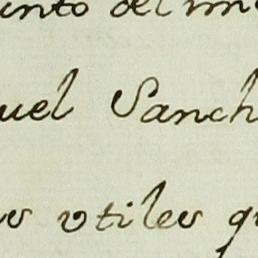 unto del mi
uel Sanch
os utiles q